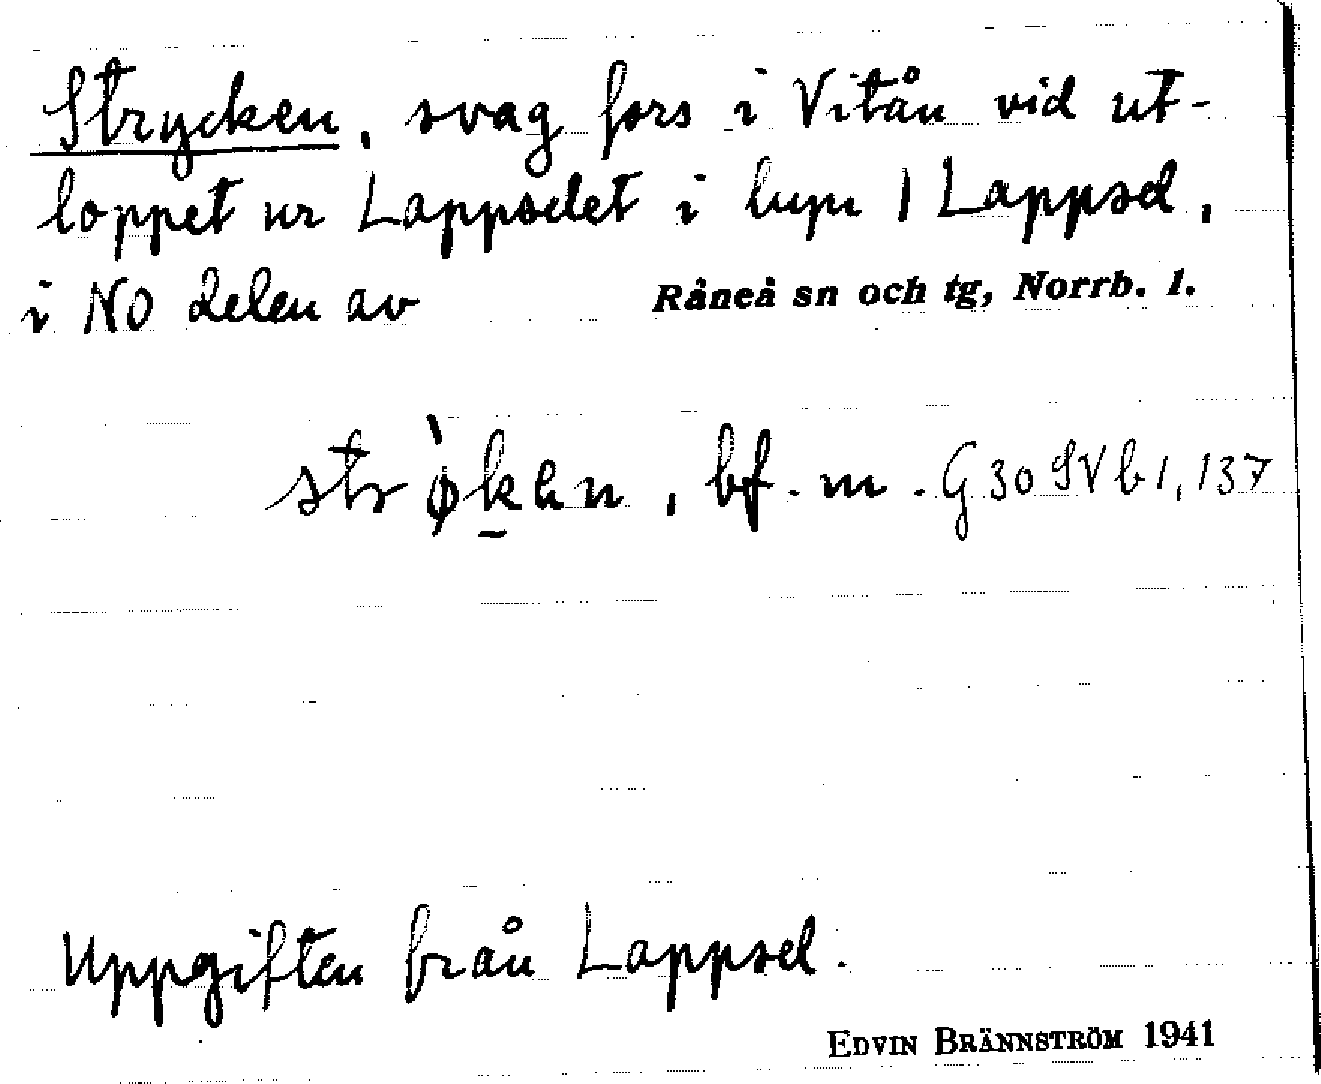 Strycken, svag fors i Vitån vid ut-
loppet ur Lappselet i byn Lappsel,
i NO delen av Råneå sn och tg, Norrb. l.
bf. m. G 30 SV b 1, 137
Uppgiften från Lappsel.
EDVIN BRÄNNSTRÖM 1941